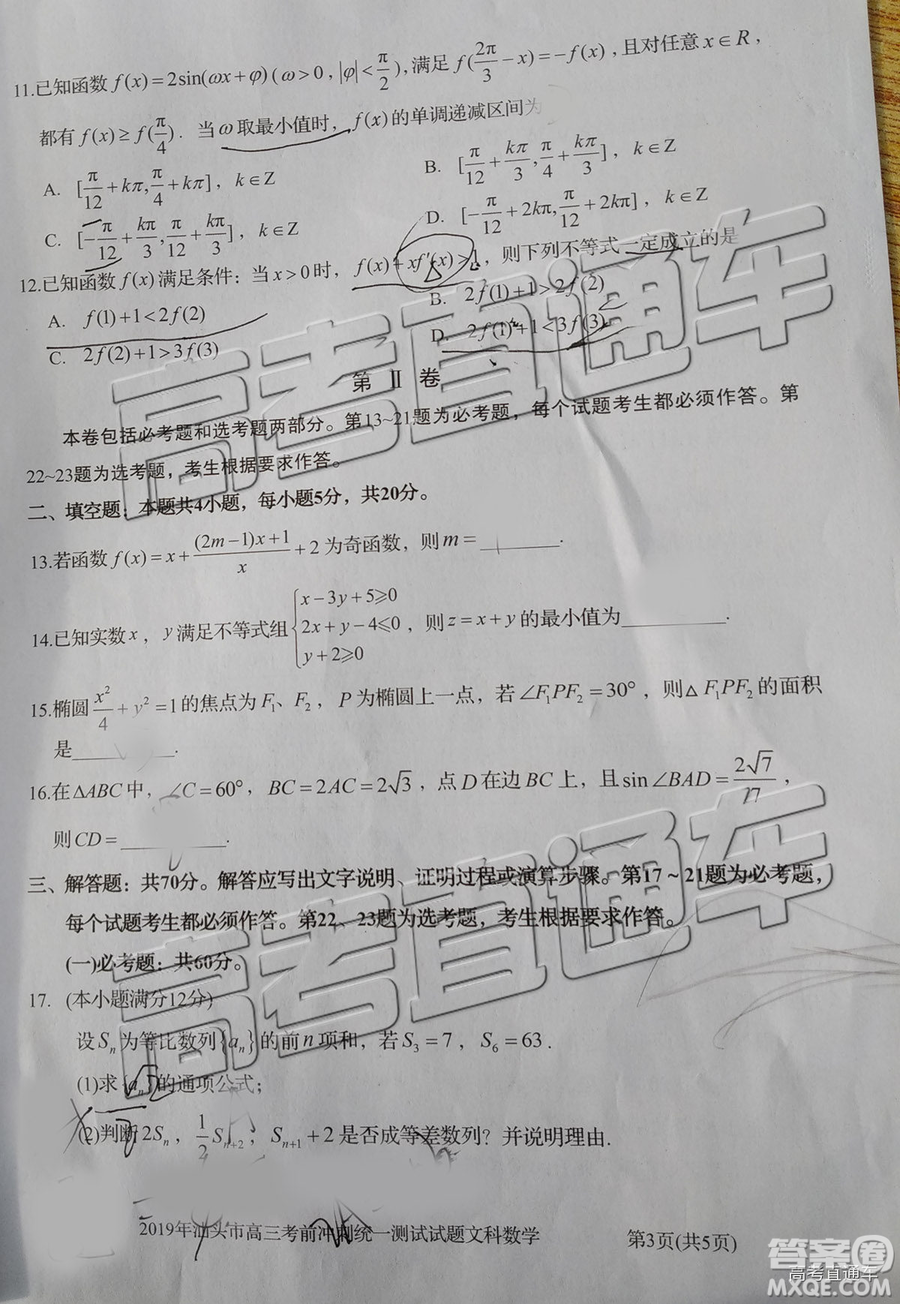 11.已知函数 f(x)=2sin(ωx+φ)(ω>0,|φ|<π/2),满足 f(2π/3-x)=-f(x),且对任意 x∈R,
都有 f(x)≥f(π/4).当ω取最小值时,f(x)的单调递减区间为
A. [π/12+kπ,π/4+kπ],k∈Z B. [π/12+kπ/3,π/4+kπ/3],k∈Z
C. [-π/12+kπ/3,π/12+kπ/3],k∈Z D. [-π/12+2kπ,π/12+2kπ],k∈Z
12.已知函数 f(x)满足条件:当 x>0时,f(x)+xf'(x)>1,则下列不等式一定成立的是
A. f(1)+1<2f(2) B. 2f(1)+1>2f(2)
C. 2f(2)+1>3f(3) D. 2f(1)+1<3f(3)
第 Ⅱ 卷
本卷包括必考题和选考题两部分。第13~21题为必考题,每个试题考生都必须作答。第
22~23题为选考题,考生根据要求作答。
二、填空题:本题共4小题,每小题5分,共20分。
13.若函数 f(x)=x+((2m-1)x+1)/x+2为奇函数,则m=______.
14.已知实数x,y满足不等式组{x-3y+5≥0 2x+y-4≤0 y+2≥0,则z=x+y的最小值为______.
15.椭圆x²/4+y²=1的焦点为F₁、F₂,P为椭圆上一点,若∠F₁PF₂=30°,则△F₁PF₂的面积
是______.
16.在△ABC中,∠C=60°,BC=2AC=2√3,点D在边BC上,且sin∠BAD=2√7/7,
则CD=______.
三、解答题:共70分。解答应写出文字说明、证明过程或演算步骤。第17~21题为必考题,
每个试题考生都必须作答。第22、23题为选考题,考生根据要求作答。
(一)必考题:共60分。
17. (本小题满分12分)
设Sₙ为等比数列{aₙ}的前n项和,若S₃=7,S₆=63.
(1)求{aₙ}的通项公式;
(2)判断2Sₙ,1/2Sₙ₊₂,Sₙ₊₁+2是否成等差数列?并说明理由.
2019年汕头市高三考前冲刺统一测试试题文科数学 第3页(共5页)
高考直通车
高考直通车
答案圈
高考直通车
MXQE.COM